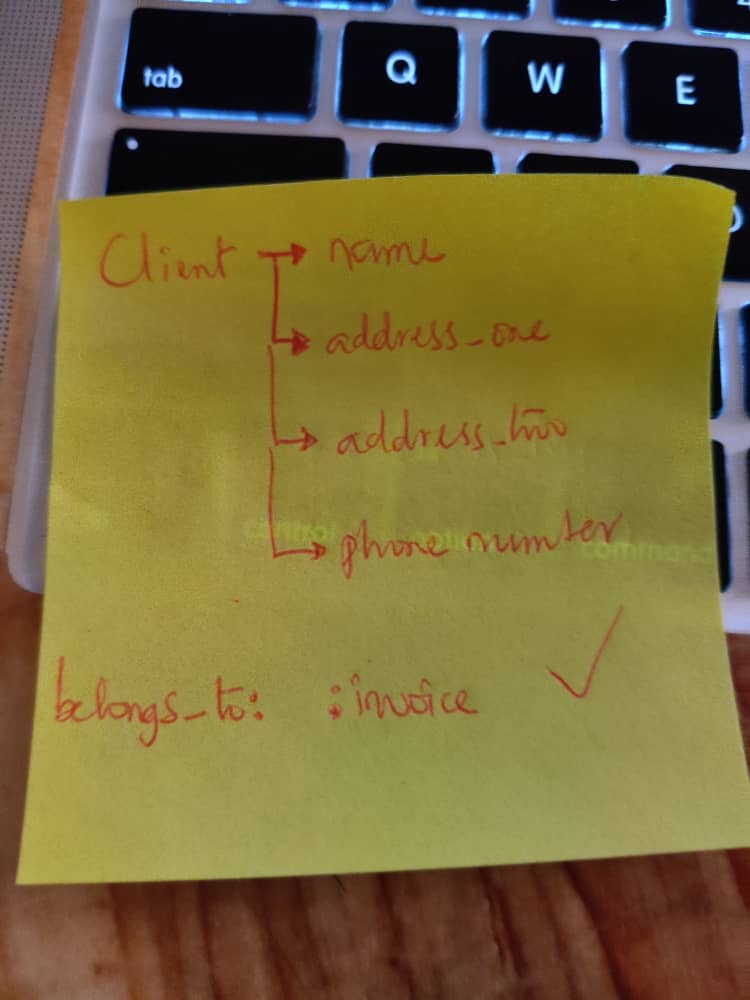 tab Q W E
Client → name
→ address_one
→ address_two
→ phone number
control option command
belongs_to: :invoice ✓